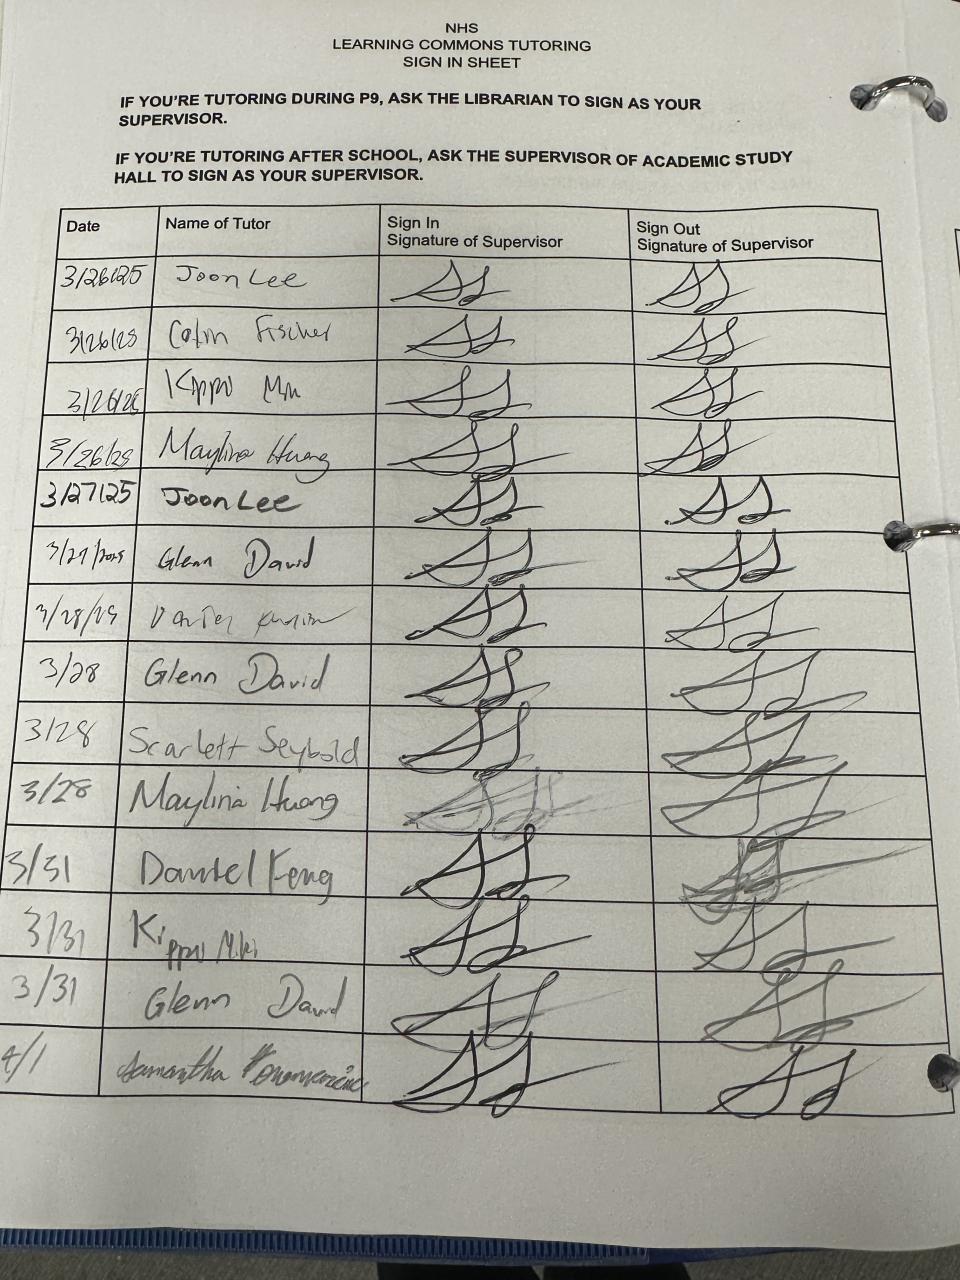 NHS
LEARNING COMMONS TUTORING
SIGN IN SHEET
IF YOU'RE TUTORING DURING P9, ASK THE LIBRARIAN TO SIGN AS YOUR
SUPERVISOR.
IF YOU'RE TUTORING AFTER SCHOOL, ASK THE SUPERVISOR OF ACADEMIC STUDY
HALL TO SIGN AS YOUR SUPERVISOR.
Date Name of Tutor Sign In Signature of Supervisor Sign Out Signature of Supervisor
3/26/25 Joon Lee
3/26/25 Colin Fischer
3/26/25 Kippu
3/26/25 Maylina Huang
3/27/25 Joon Lee
3/27/2025 Glenn David
3/28/25
3/28 Glenn David
3/28 Scarlett Seybold
3/28 Maylina Huang
3/31 Daniel Feng
3/31 Kippu
3/31 Glenn David
4/1 Samantha